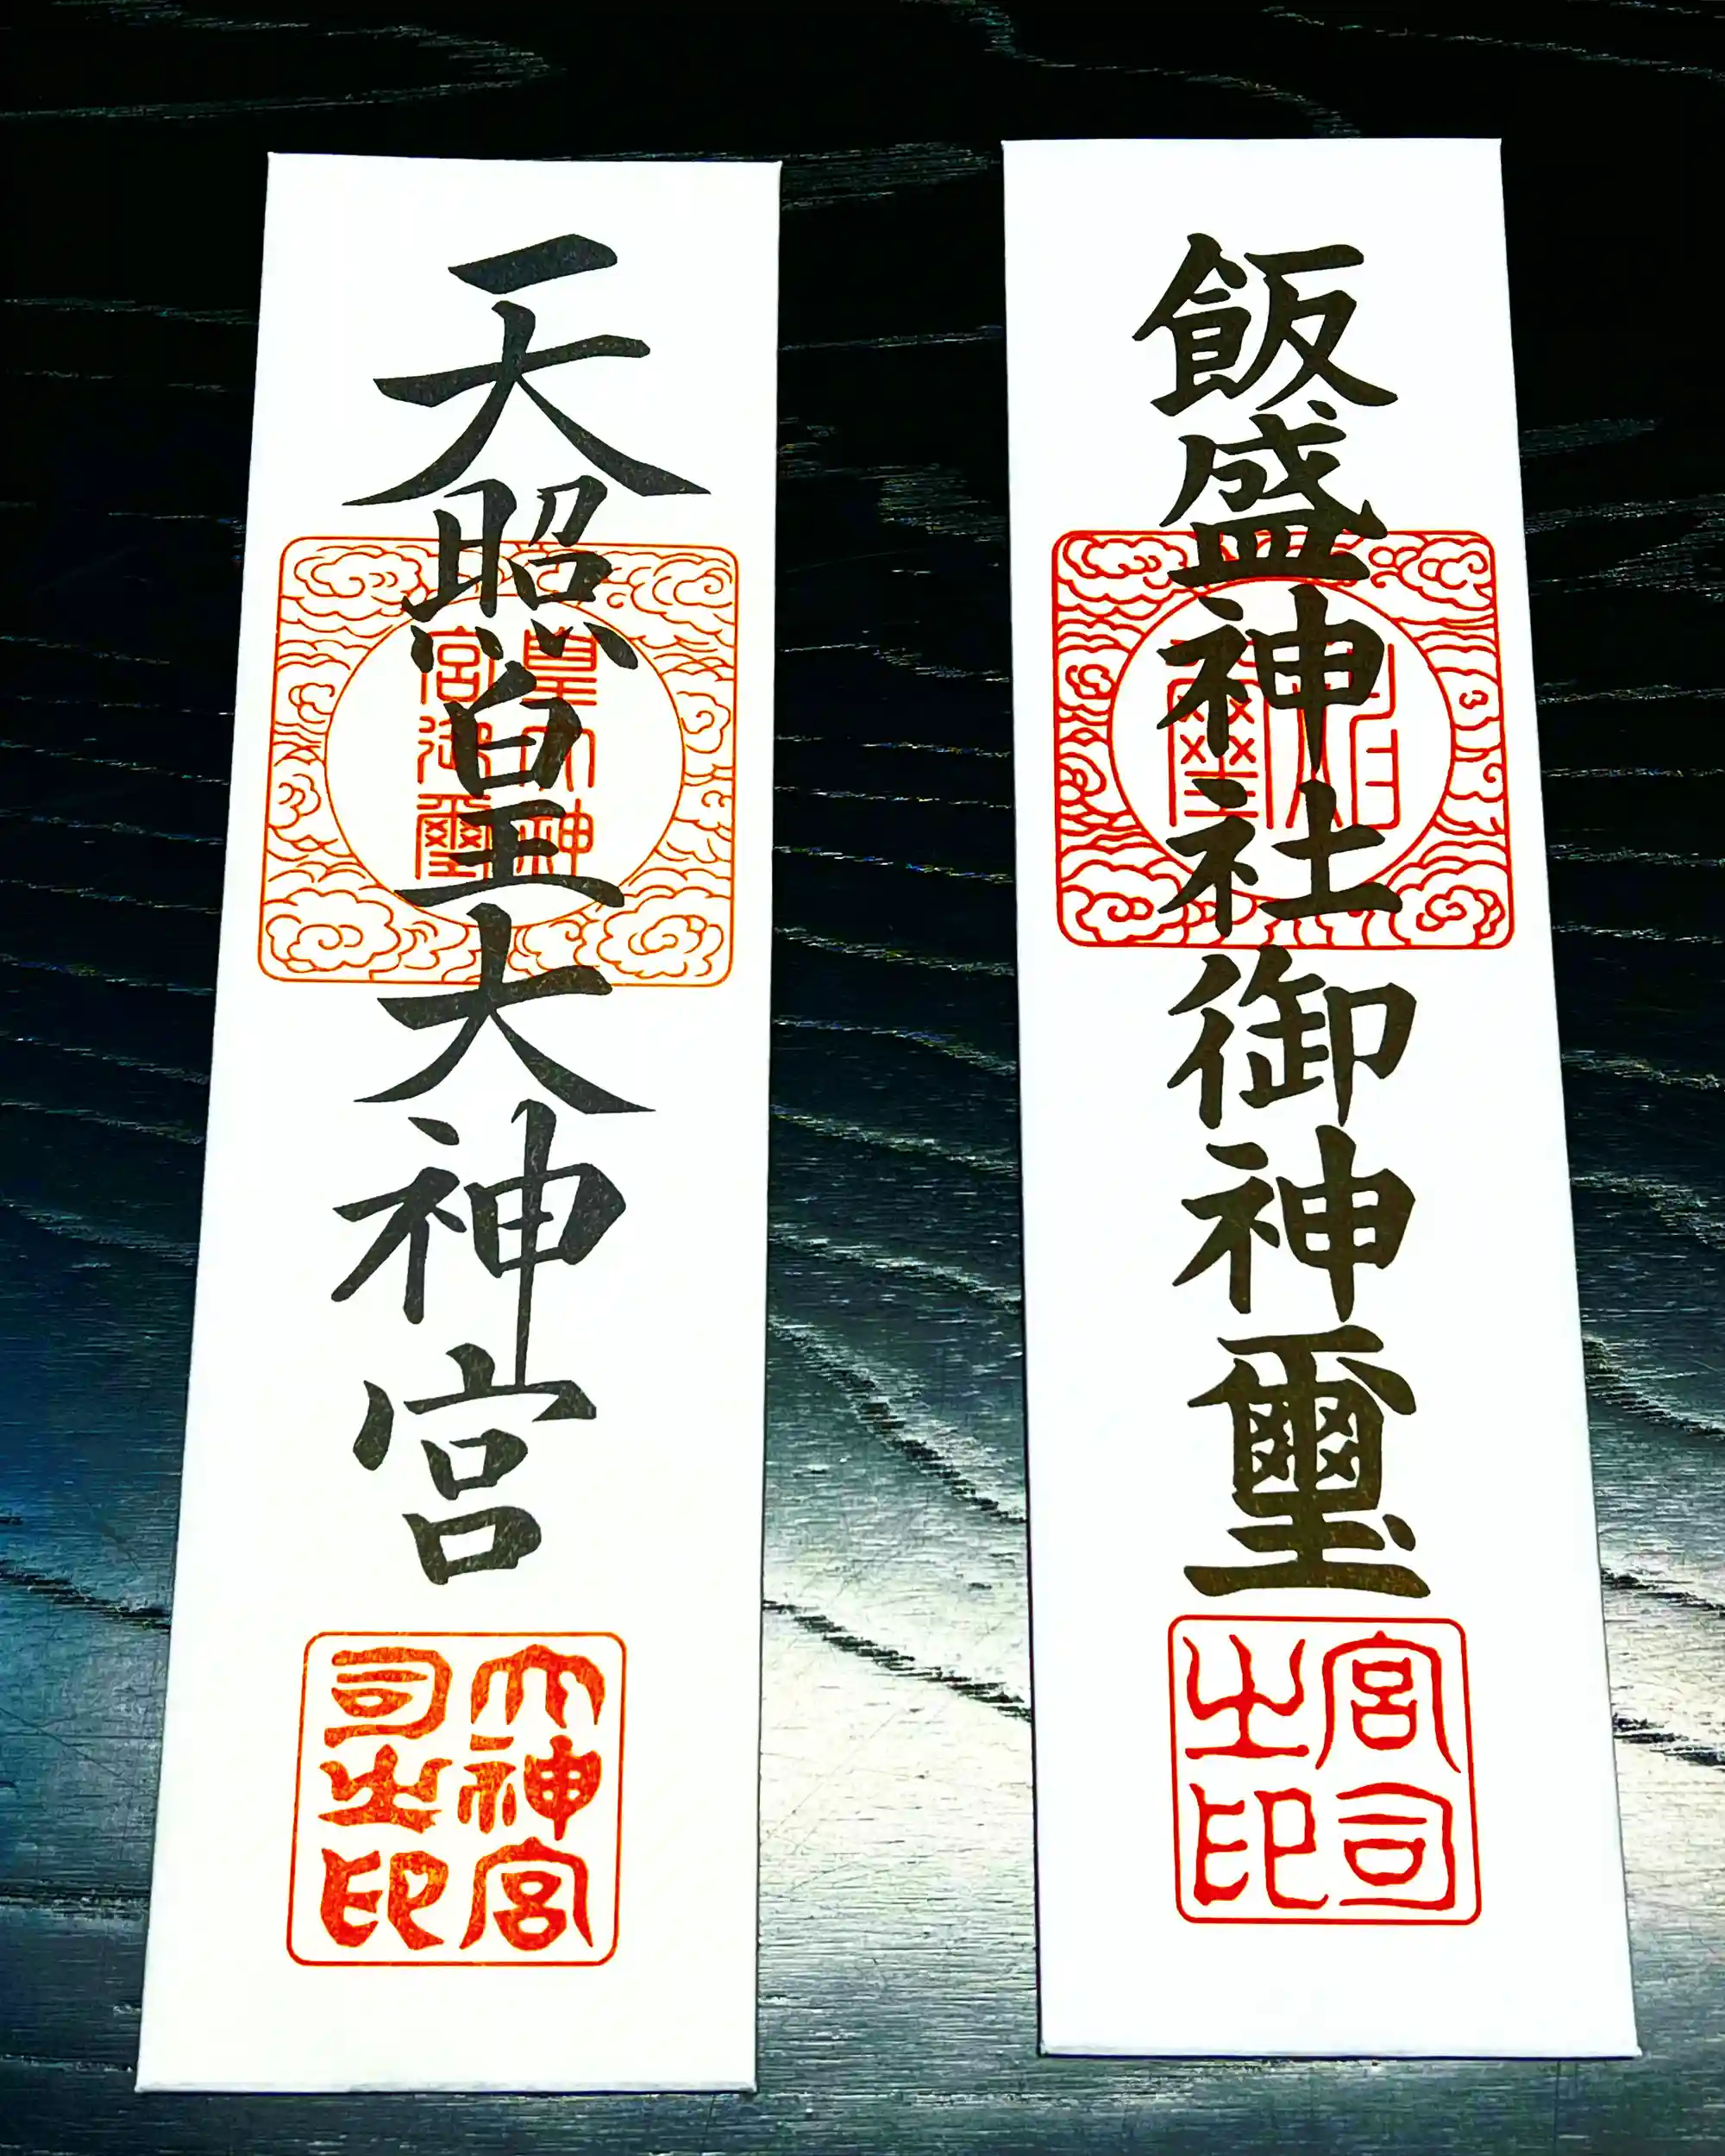 飯盛神社御神璽
宮司
之印
天照皇大神宮
皇大神
宮御璽
大神宮
司之印